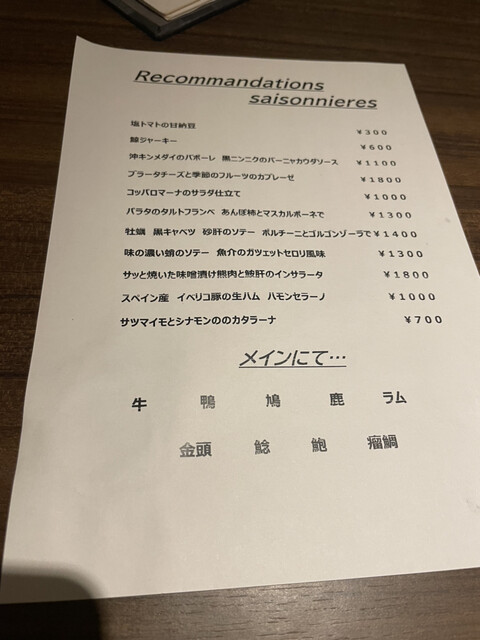 Recommandations
saisonnieres
塩トマトの甘納豆 ¥300
鯨ジャーキー ¥600
沖キンメダイのバポーレ 黒ニンニクのバーニャカウダソース ¥1100
ブラータチーズと季節のフルーツのカプレーゼ ¥1800
コッパロマーナのサラダ仕立て ¥1000
パラタのタルトフランベ あんぽ柿とマスカルポーネで ¥1300
牡蠣 黒キャベツ 砂肝のソテー ポルチーニとゴルゴンゾーラで ¥1400
味の濃い蛸のソテー 魚介のガツェットセロリ風味 ¥1300
サッと焼いた味噌漬け熊肉と鮟肝のインサラータ ¥1800
スペイン産 イベリコ豚の生ハム ハモンセラーノ ¥1000
サツマイモとシナモンののカタラーナ ¥700
メインにて…
牛 鴨 鳩 鹿 ラム
金頭 鯰 鮑 瘤鯛